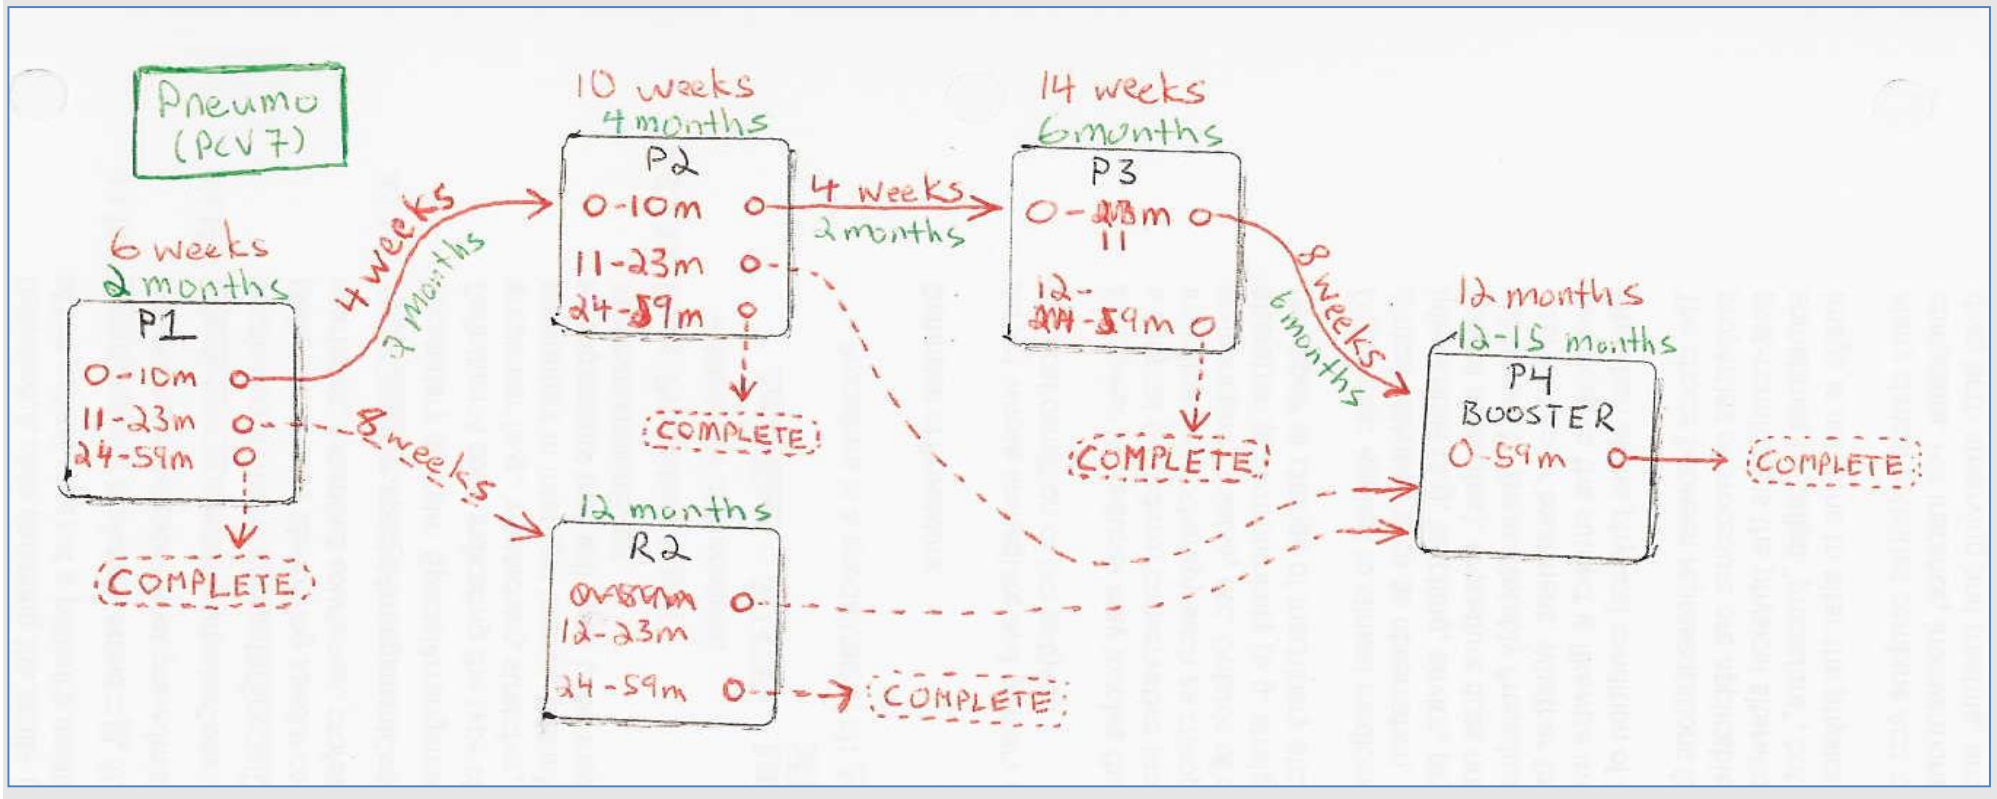 Pneumo
(PCV7)
6 weeks
2 months
P1
0-10m
11-23m
24-59m
COMPLETE
4 weeks
months
8 weeks
10 weeks
4 months
P2
0-10m
11-23m
24-59m
COMPLETE
4 weeks
2 months
14 weeks
6 months
P3
0-
m
11
12-
-59m
COMPLETE
8 weeks
6 months
12 months
R2
12-23m
24-59m
COMPLETE
12 months
12-15 months
P4
BOOSTER
0-59m
COMPLETE